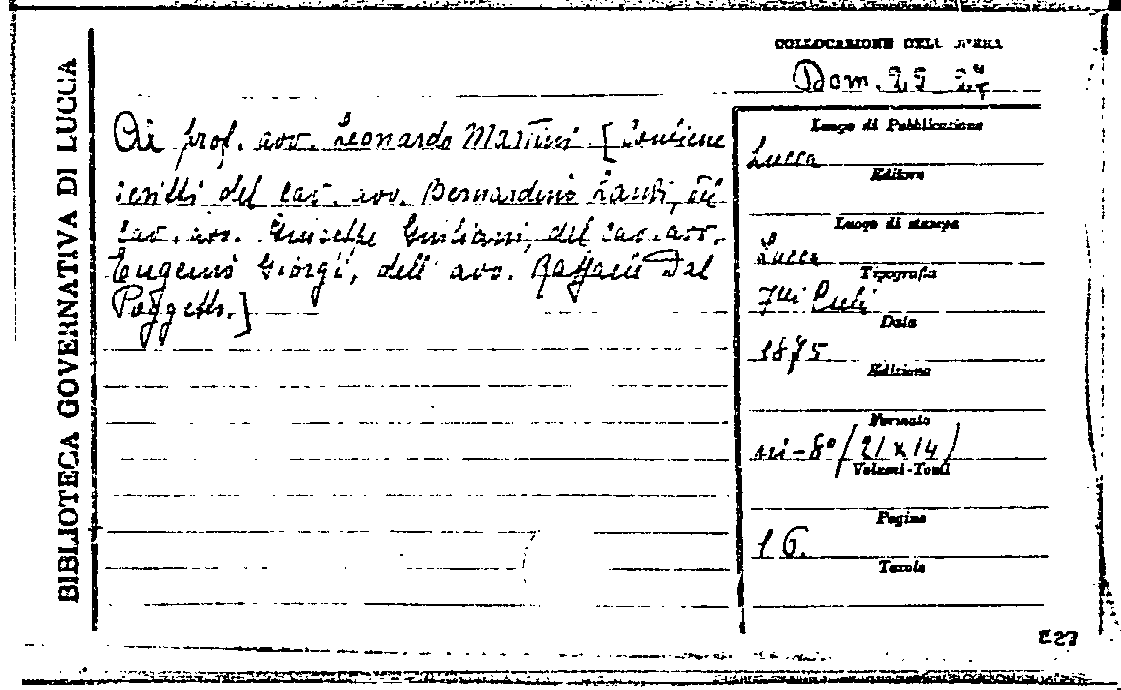 BIBLIOTECA GOVERNATIVA DI LUCCA
COLLOCAZIONE DELL'OPERA
Dom. 29 27
Al prof. avv. Leonardo Martini [Contiene
scritti del cav. avv. Bernardino Landi, del
cav. avv. Giuseppe Giuliani, del cav. avv.
Eugenio Giorgi, dell'avv. Raffaele Dal
Poggetto.]
Luogo di Pubblicazione
Lucca
Editore
Luogo di stampa
Lucca
Tipografia
Data
1875
Edizione
Formato
in-8° (21 x 14)
Volumi-Tomi
Pagine
16.
Tavole